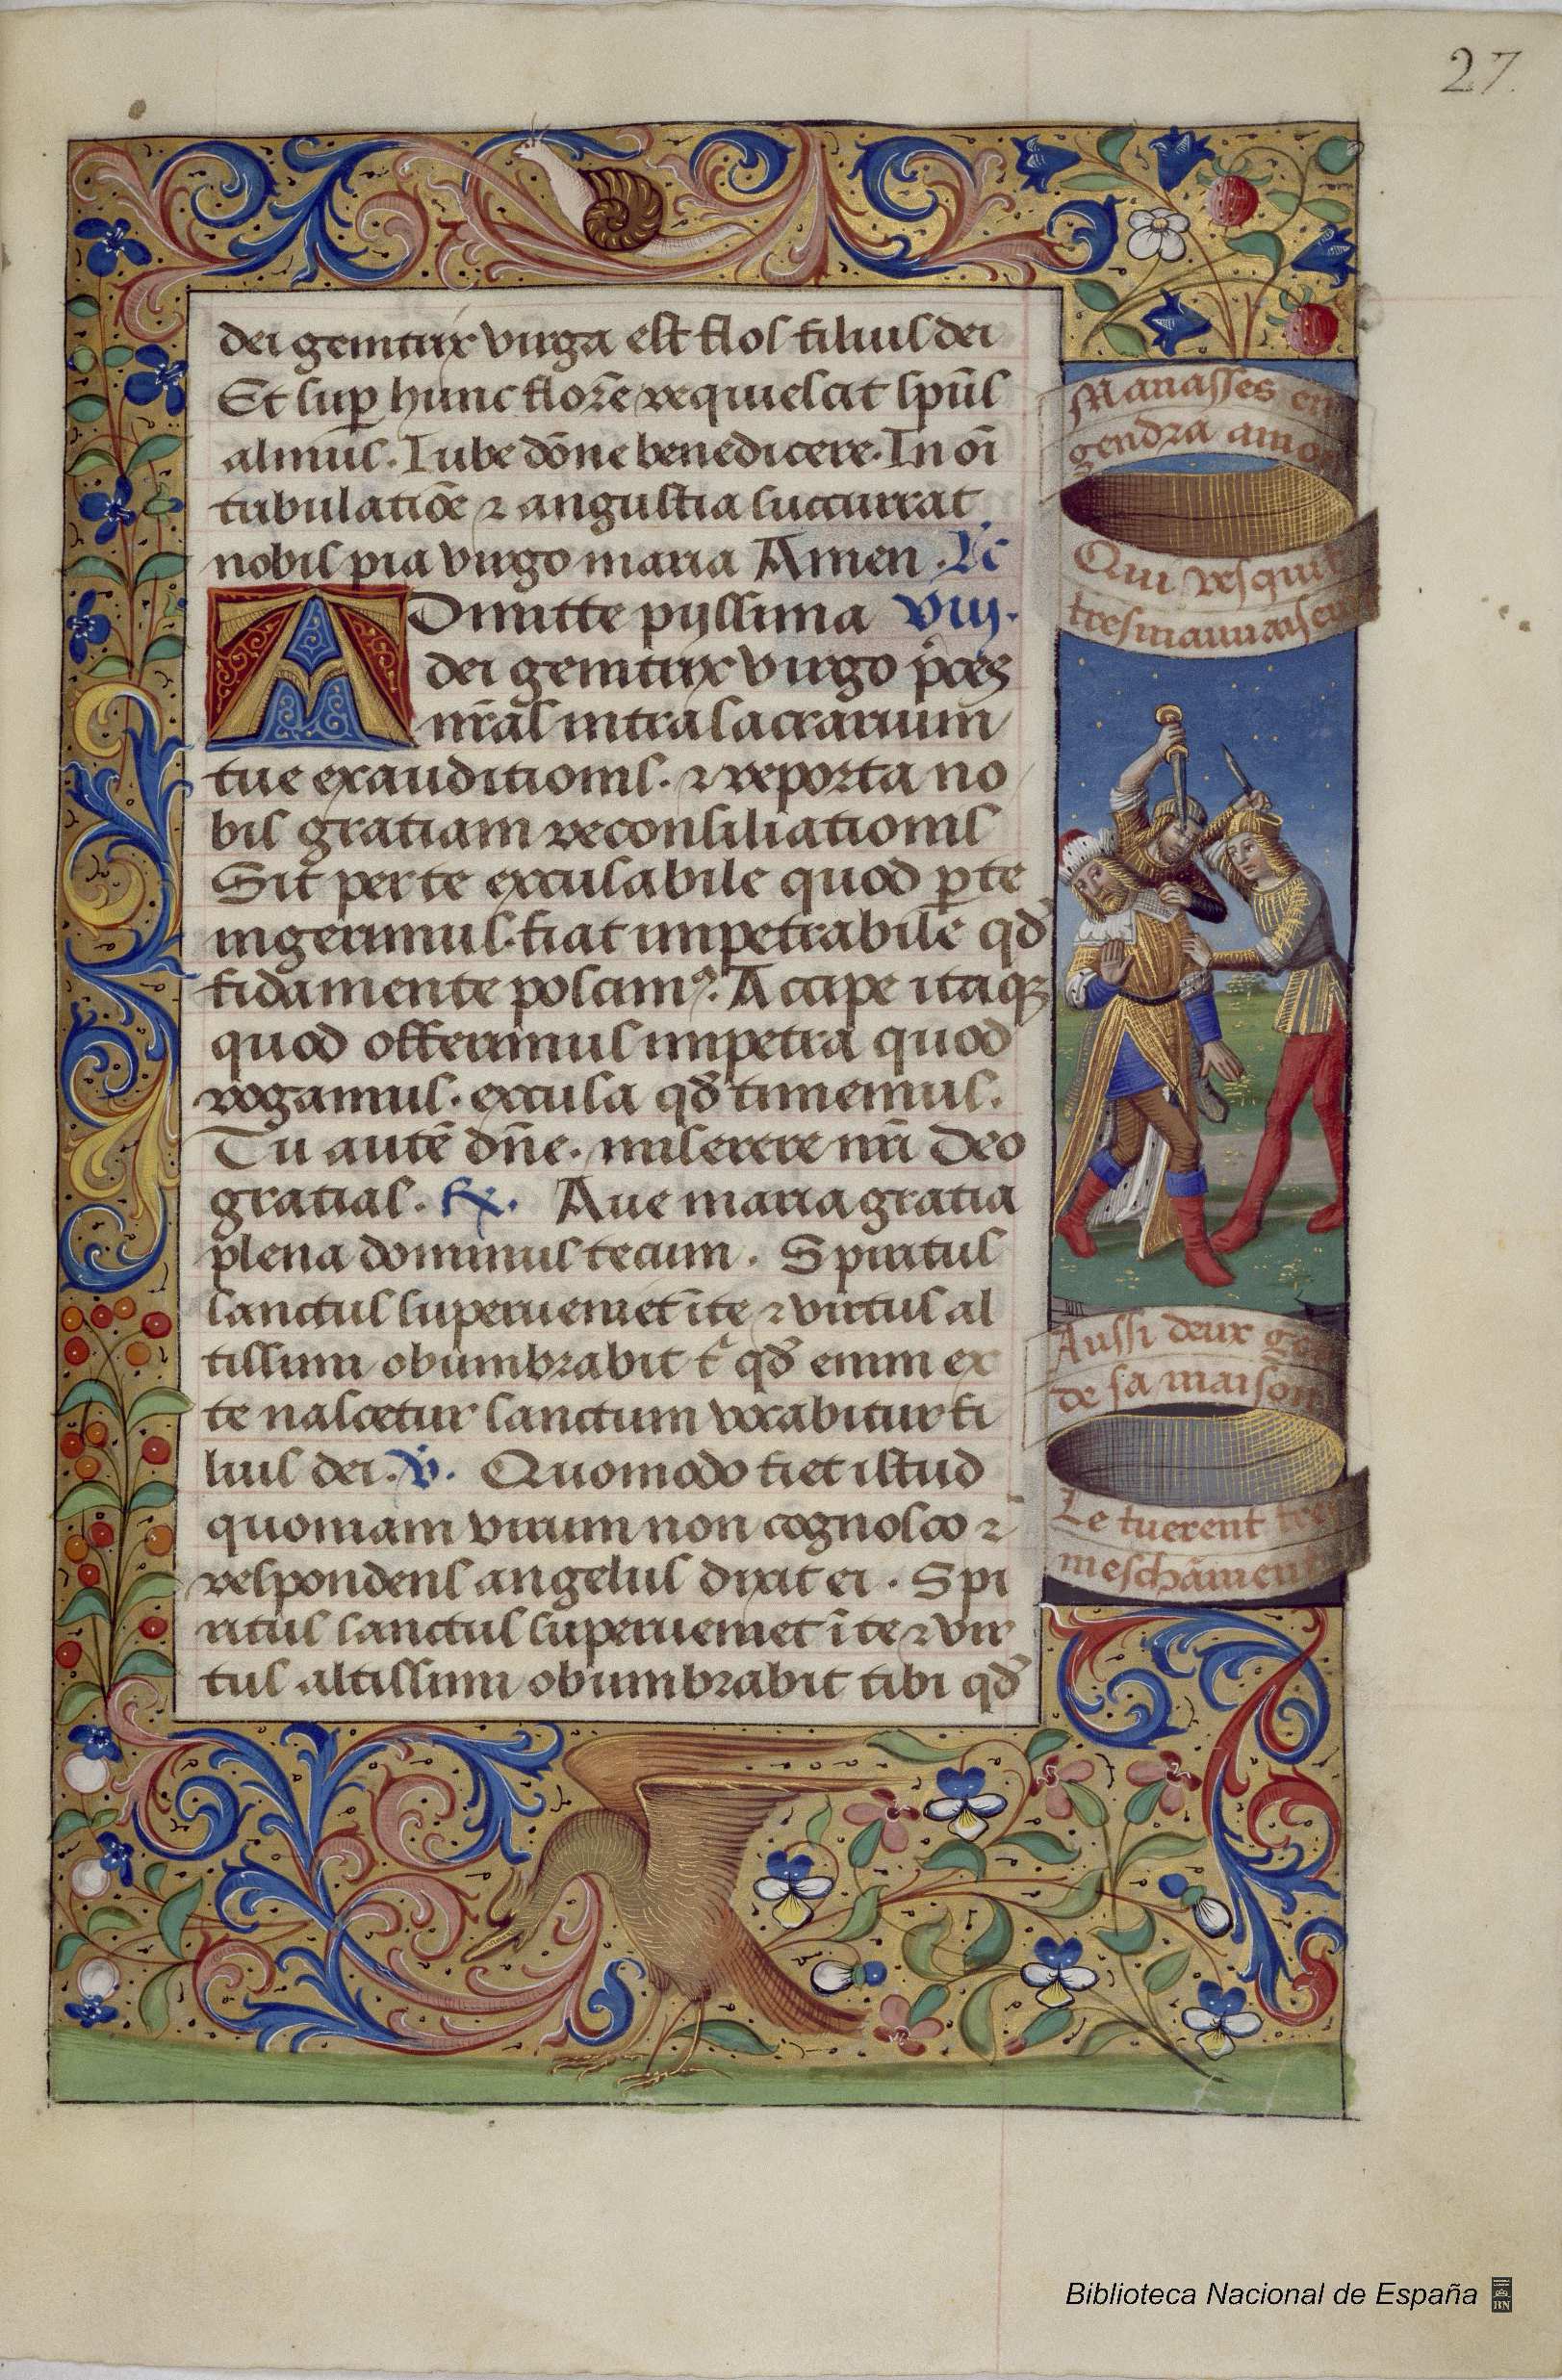 27.
dei genitrix virga est flos filius dei
Et sup hunc florē requiescit spūs
almus. Iube dōne benedicere. In oī
tribulatiōe ⁊ angustia succurrat
nobis pia virgo maria Amen. Lc
Admitte pyssima viij.
dei genitrix virgo p̄ces
nr̄as intra sacrarium
tue exauditionis. ⁊ reporta no
bis gratiam reconsiliationis
Sit per te excusabile quod p te
ingerimus. fiat impetrabile qd̄
fida mente poscimꝰ. Accipe itaqꝫ
quod offerimus impetra quod
rogamus. excusa qd̄ timemus.
Tu autē dn̄e. miserere nr̄i Deo
gratias. ℟. Aue maria gratia
plena dominus tecum. Spiritus
sanctus superueniet ī te ⁊ virtus al
tissimi obumbrabit tⁱ qd̄ enim ex
te nascetur sanctum vocabitur fi
lius dei. v̄. Quomodo fiet istud
quoniam virum non cognosco ⁊
respondens angelus dixit ei. Spi
ritus sanctus superueniet ī te ⁊ vir
tus altissimi obumbrabit tibi qd̄
Manasses en
gendra amon
Qui vesquit
tresmauuaisem
Aussi deux gens
de sa maison
Le tuerent tres
meschāment
Biblioteca Nacional de España
BN